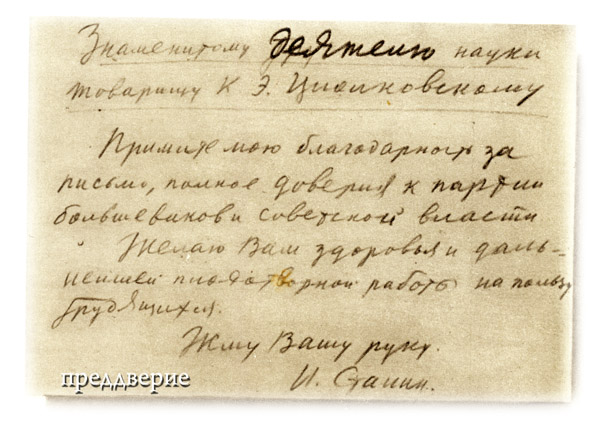 Знаменитому деятелю науки
товарищу К. Э. Циолковскому
Примите мою благодарность за
письмо, полное доверия к партии
большевиков и советской власти
Желаю Вам здоровья и даль-
нейшей плодотворной работы на пользу
трудящихся.
Жму Вашу руку.
И. Сталин.
преддверие